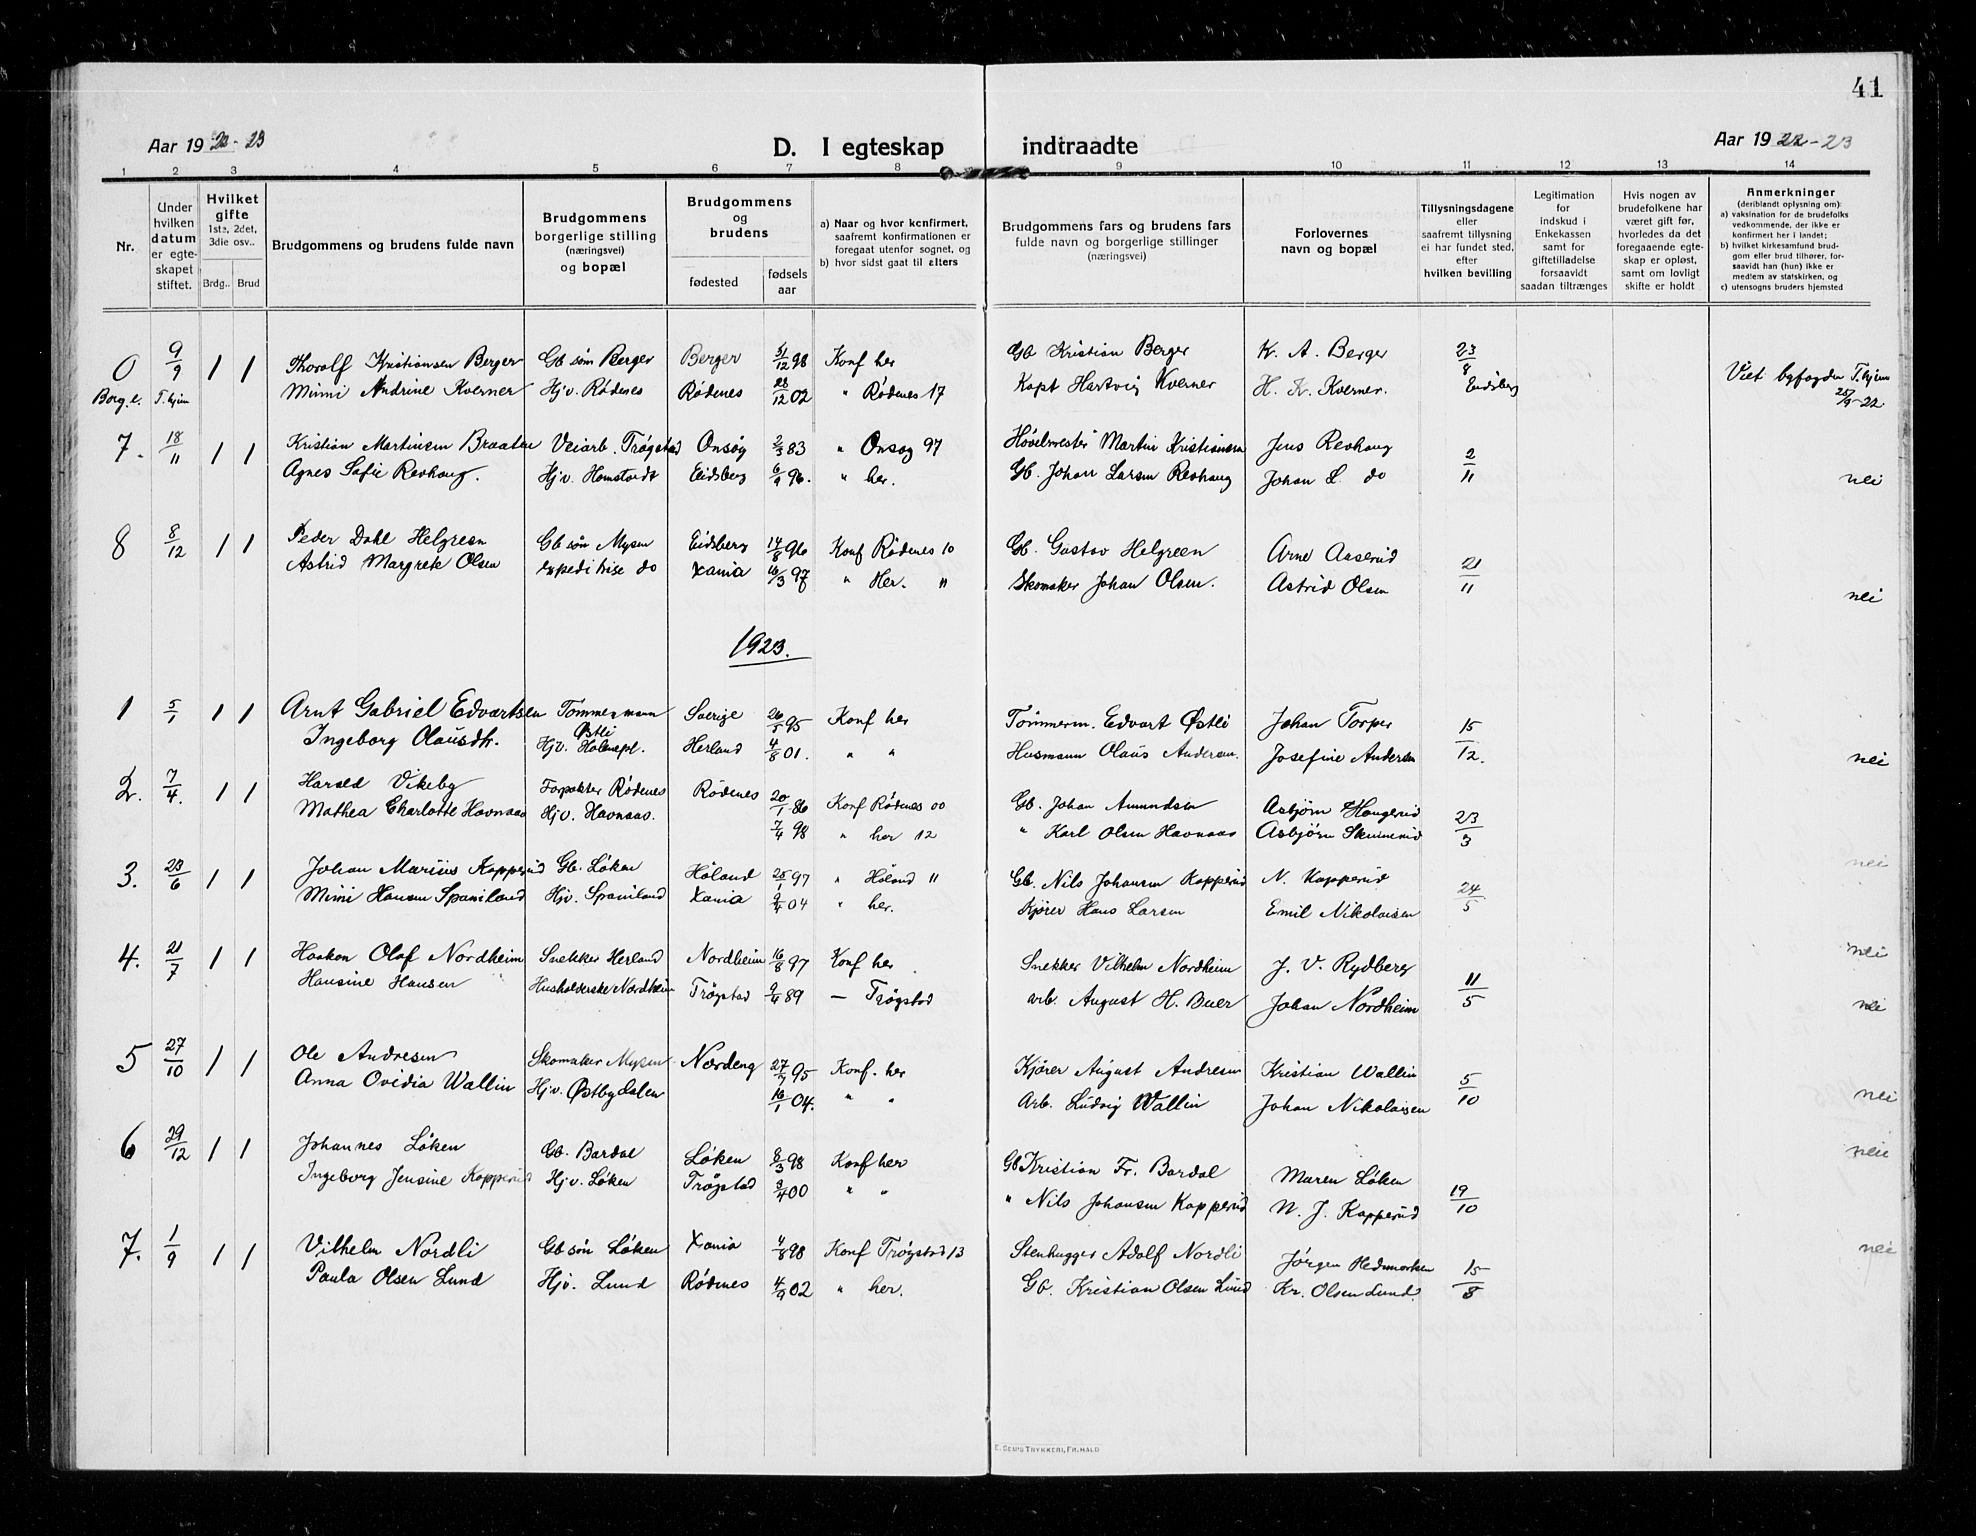 41
Aar 1922-23
D. I egteskap indtraadte
Aar 1922-23
1 2 3 4 5 6 7 8 9 10 11 12 13 14
Nr.
Under hvilken datum er egteskapet stiftet.
Hvilket gifte 1ste, 2det, 3die osv..
Brdg.. Brud
Brudgommens og brudens fulde navn
Brudgommens borgerlige stilling (næringsvei) og bopæl
Brudgommens og brudens
fødested
fødsels aar
a) Naar og hvor konfirmert, saafremt konfirmationen er foregaat utenfor sognet, og
b) hvor sidst gaat til alters
Brudgommens fars og brudens fars fulde navn og borgerlige stillinger (næringsvei)
Forlovernes navn og bopæl
Tillysningsdagene eller saafremt tillysning ei har fundet sted, efter hvilken bevilling
Legitimation for indskud i Enkekassen samt for giftetilladelse forsaavidt saadan tiltrænges
Hvis nogen av brudefolkene har været gift før, hvorledes da det foregaaende egteskap er opløst, samt om lovligt skifte er holdt
Anmerkninger (deriblandt oplysning om):
a) vaksination for de brudefolks vedkommende, der ikke er konfirmert her i landet;
b) hvilket kirkesamfund brudgom eller brud tilhører, forsaavidt han (hun) ikke er medlem av statskirken, og
c) utensogns bruders hjemsted
0 9/9 1 1 Thorolf Kristiansen Berger Gb søn Berger Berger 31/12 98 Konf her Gb Kristian Berger K. A. Berger 23/8
Borg.l. T.hjem Mimi Andrine Kverner Hjv. Rødenes Rødenes 28/12 02 " Rødenes 17 Kapt Hartvig Kverner H. Kr. Kverner. Eidsberg Viet byfogden T.hjem 25/9-22.
7. 18/11 1 1 Kristian Martinsen Braaten Veiarb. Trøgstad Onsøy 2/3 83 " Onsøy 97 Høvelmester Martin Kristiansen Jens Revhaug 2/11
Agnes Sofie Revhaug. Hjv. Homstvedt Eidsberg 6/9 96. " her. Gb. Johan Larsen Revhaug Johan L. do nei
8 8/12 1 1 Peder Dahl Helgreen Gb søn Mysen Eidsberg 14/8 96 Konf Rødenes 10 Gb. Gustav Helgreen Arne Aaserud 21/11
Astrid Margrete Olsen expeditrise do Xania 16/3 97 " Her. 11 Skomaker Johan Olsen. Astrid Olsen nei
1923.
1 5/1 1 1 Arnt Gabriel Edvartsen Tømmermann Østli Sverige 26/5 95 Konf her Tømmerm. Edvart Østli Johan Torper 15/12.
Ingeborg Olausdtr. Hjv. Holmepl. Herland 4/8 01. " " Husmann Olaus Andersen. Josefine Andersen nei
2. 7/4. 1 1 Harald Vikeby Forpakter Rødenes Rødenes 20/1 86 Konf Rødenes 00 Gb. Johan Amundsen Asbjørn Haugerud 23/3
Mathea Charlotte Havnsaas Hjv. Havnsaas. 7/4 98 " her 12 " Karl Olsen Havnaas Asbjørn Skuinerud nei
3. 23/6 1 1 Johan Marius Kapperud Gb. Løken Høland 25/1 97 " Høland 11 Gb. Nils Johansen Kapperud N. Kapperud 24/5
Mimi Hansen Spaniland Hjv. Spaniland Xania 2/4 04 " her. Kjører Hans Larsen Emil Nikolaisen
4. 21/7 1 1 Haakon Olaf Nordheim Snekker Herland Nordheim 16/8 97 Konf her Snekker Vilhelm Nordheim J. V. Rydberg 11/5 nei
Hansine Hansen Husholderske Nordheim Trøgstad 9/4 89 — Trøgstad arb. August H. Buer Johan Nordheim nei
5 27/10 1 1 Ole Andresen Skomaker Mysen Nordeng 27/7 95 Konf. her Kjører August Andresen Kristian Wallin 5/10
Anna Ovidia Wallin Hjv. Østbydalen 16/1 04. " " Arb. Ludvig Wallin Johan Nikolaisen nei
6 29/12 1 1 Johannes Løken Gb. Bardal Løken 8/3 98 Konf her Gb Kristian Fr. Bardal Maren Løken 19/10 nei
Ingeborg Jensine Kapperud Hjv. Løken Trøgstad 3/4 00 " " " Nils Johansen Kapperud N. J. Kapperud
7. 1/9 1 1 Vilhelm Nordli Gb søn Løken Xania 4/8 98 Konf Trøgstad 13 Stenhugger Adolf Nordli Jørgen Hedmarken 15/8 nei
Paula Olsen Lund Hjv. Lund Rødenes 4/9 02 " her. Gb. Kristian Olsen Lund Kr. Olsen Lund.
E. SEM'S TRYKKERI, FR.HALD